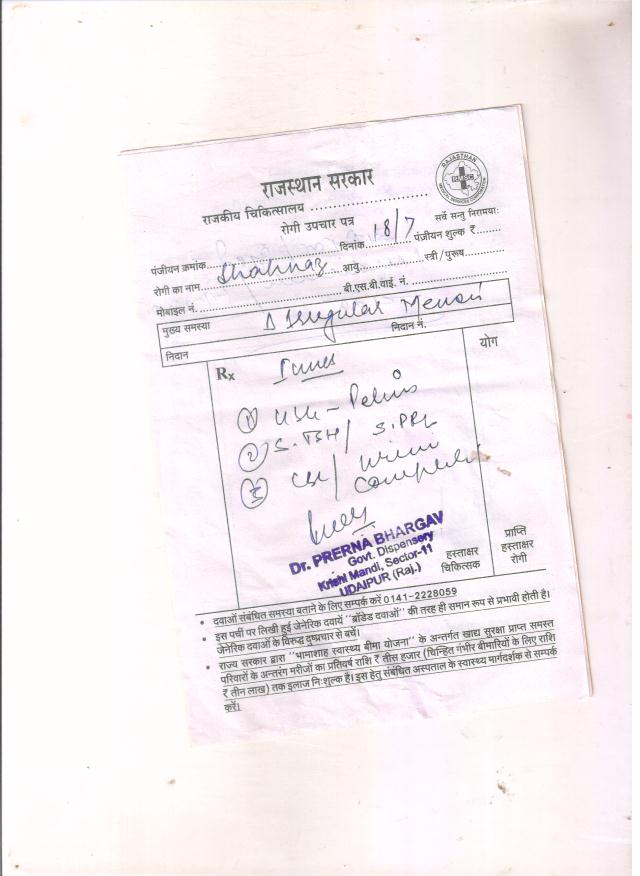 राजस्थान सरकार
RAJASTHAN
राजकीय चिकित्सालय ..............................
रोगी उपचार पत्र
सर्वे सन्तु निरामया:
पंजीयन क्रमांक.............................. दिनांक 18/7 पंजीयन शुल्क ₹........
रोगी का नाम Shahnaz आयु.................. स्त्री/पुरूष..........
मोबाइल नं. .............................. बी.एस.बी.वाई. नं. ..........................
मुख्य समस्या Irregular Menses
निदान निदान नं.
Rx
योग
① USG - Pelvis
② S. TSH / S. PRL
③ CBC / Urine
Complete
Dr. PRERNA BHARGAV
Govt. Dispensery
Krishi Mandi, Sector-11
UDAIPUR (Raj.)
हस्ताक्षर
चिकित्सक
प्राप्ति
हस्ताक्षर
रोगी
• दवाओं संबंधित समस्या बताने के लिए सम्पर्क करें 0141-2228059
• इस पर्ची पर लिखी हुई जेनेरिक दवायें "ब्रांडेड दवाओं" की तरह ही समान रूप से प्रभावी होती है।
जेनेरिक दवाओं के विरुद्ध दुष्प्रचार से बचें।
• राज्य सरकार द्वारा "भामाशाह स्वास्थ्य बीमा योजना" के अन्तर्गत खाद्य सुरक्षा प्राप्त समस्त
परिवारों के अन्तरंग मरीजों का प्रतिवर्ष राशि ₹ तीस हजार (चिन्हित गंभीर बीमारियों के लिए राशि
₹ तीन लाख) तक इलाज नि:शुल्क है। इस हेतु संबंधित अस्पताल के स्वास्थ्य मार्गदर्शक से सम्पर्क
करें।